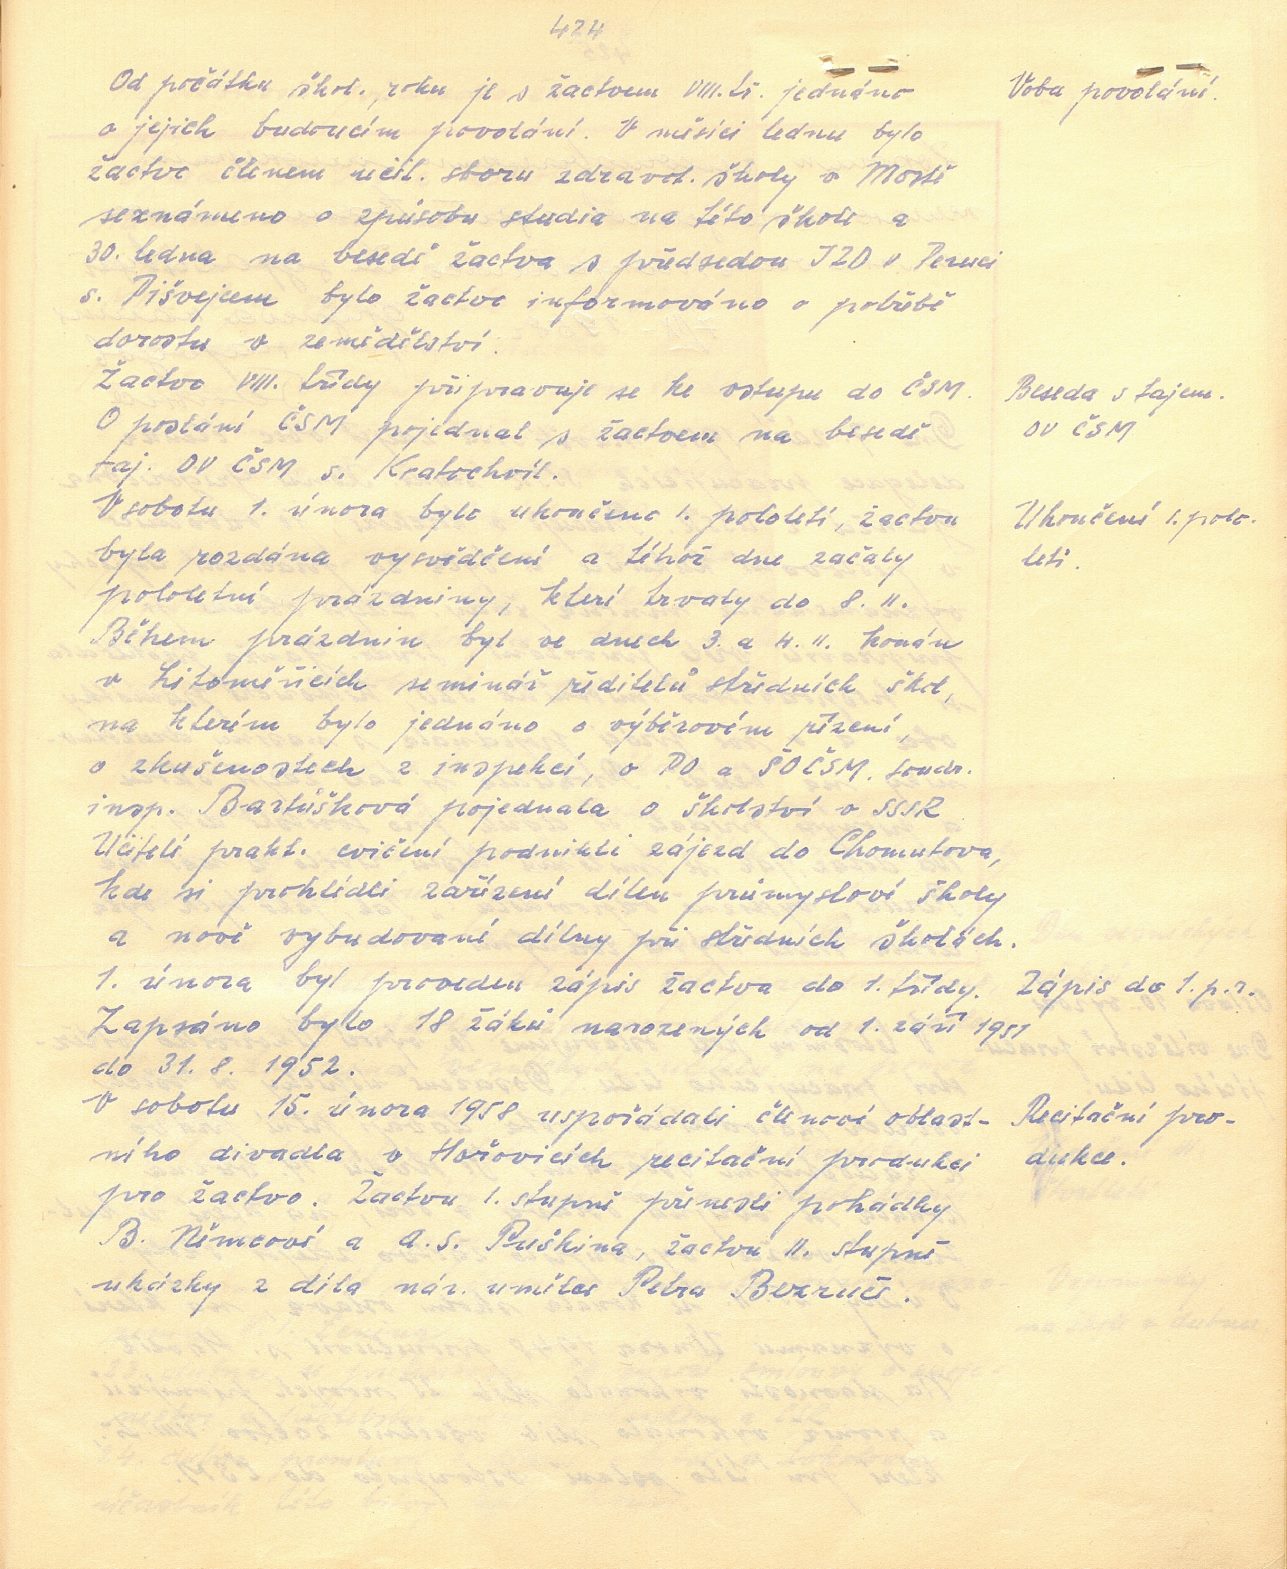 424
Od počátku škol. roku je s žactvem VIII. tř. jednáno
Volba povolání.
o jejich budoucím povolání. V měsíci lednu bylo
žactvo členem učit. sboru zdravot. školy v Mostě
seznámeno o způsobu studia na této škole a
30. ledna na besedě žactva s předsedou JZD v Peruci
s. Pišvejcem bylo žactvo informováno o potřebě
dorostu v zemědělství.
Žactvo VIII. třídy připravuje se ke vstupu do ČSM.
Beseda s tajem.
O poslání ČSM pojednal s žactvem na besedě
OV ČSM
taj. OV ČSM s. Kratochvíl.
V sobotu 1. února bylo ukončeno 1. pololetí, žactvu
Ukončení 1. polo-
byla rozdána vysvědčení a téhož dne začaly
letí.
pololetní prázdniny, které trvaly do 8. II.
Během prázdnin byl ve dnech 3. a 4. II. konán
v Litoměřicích seminář ředitelů středních škol,
na kterém bylo jednáno o výběrovém řízení,
o zkušenostech z inspekcí, o PO a ŠOČSM. soudr.
insp. Bartůšková pojednala o školství v SSSR
Učitelé prakt. cvičení podnikli zájezd do Chomutova,
kde si prohlédli zařízení dílen průmyslové školy
a nově vybudované dílny při středních školách.
1. února byl proveden zápis žactva do 1. třídy.
Zápis do 1. p. r.
Zapsáno bylo 18 žáků narozených od 1. září 1951
do 31. 8. 1952.
V sobotu 15. února 1958 uspořádali členové oblast-
Recitační pro-
ního divadla v Hořovicích recitační produkci
dukce.
pro žactvo. Žactvu 1. stupně přinesli pohádky
B. Němcové a A. S. Puškina, žactvu II. stupně
ukázky z díla nár. umělce Petra Bezruče.